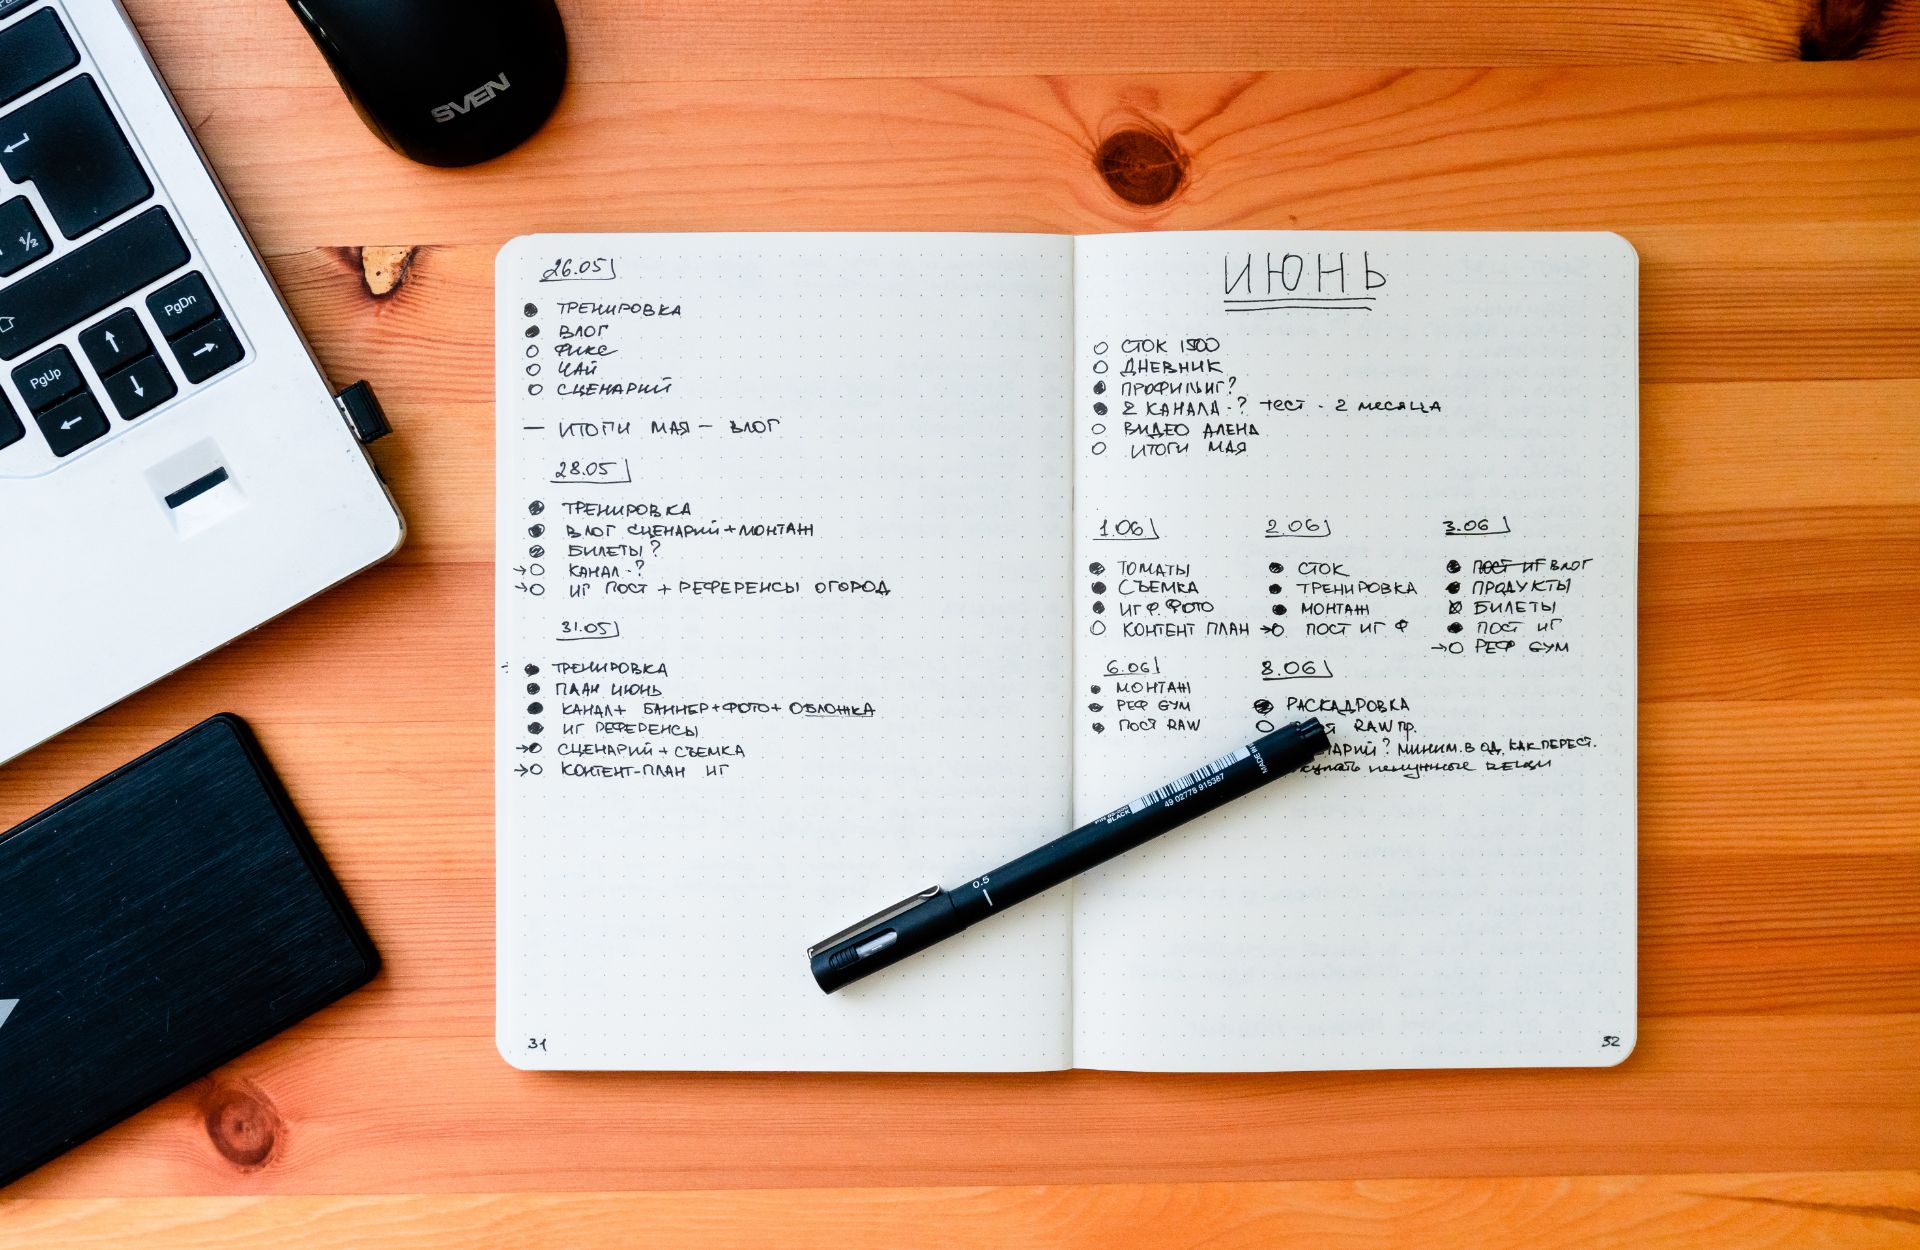 SVEN
1/2
PgDn
PgUp
26.05
ТРЕНИРОВКА
ВЛОГ
ФИКС
ЧАЙ
СЦЕНАРИЙ
— ИТОГИ МАЯ — ВЛОГ
28.05
ТРЕНИРОВКА
ВЛОГ СЦЕНАРИЙ+МОНТАЖ
БИЛЕТЫ?
→ КАНАЛ-?
→ ИГ ПОСТ + РЕФЕРЕНСЫ ОГОРОД
31.05
ТРЕНИРОВКА
ПЛАН ИЮНЬ
КАНАЛ+ БАННЕР+ФОТО+ ОБЛОЖКА
ИГ РЕФЕРЕНСЫ
→ СЦЕНАРИЙ+СЪЕМКА
→ КОНТЕНТ-ПЛАН ИГ
31
ИЮНЬ
СТОК 1500
ДНЕВНИК
ПРОФИЛЬ ИГ?
2 КАНАЛА-? ТЕСТ - 2 месяца
ВИДЕО АЛЕНА
ИТОГИ МАЯ
1.06
ТОМАТЫ
СЪЕМКА
ИГ Ф. ФОТО
КОНТЕНТ ПЛАН
2.06
СТОК
ТРЕНИРОВКА
МОНТАЖ
→ ПОСТ ИГ Ф
3.06
ПОСТ ИГ ВЛОГ
ПРОДУКТЫ
БИЛЕТЫ
ПОСТ ИГ
→ РЕФ GYM
6.06
МОНТАЖ
РЕФ GYM
ПОСТ RAW
8.06
РАСКАДРОВКА
RAW ПР.
? МИНИМ. В ОД. КАК ПЕРЕСТ.
ненужные вещи
32
MADE IN
49 02778 915387
BLACK
0.5